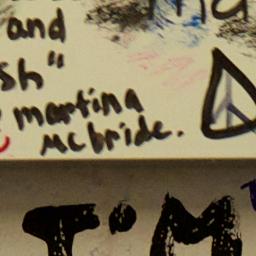 and
sh"
martina
mcbride.
I'M